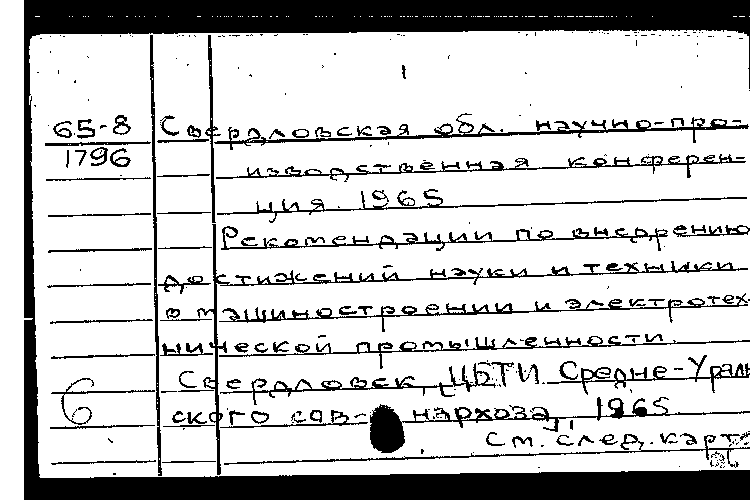 65-8
1796
Свердловская обл. научно-про-
изводственная конферен-
ция. 1965
Рекомендации по внедрению
достижений науки и техники
в машиностроении и электротех-
нической промышленности.
Свердловск, ЦБТИ Средне-Ураль
ского сов-нархоза, 1965
6
См. след. карт.